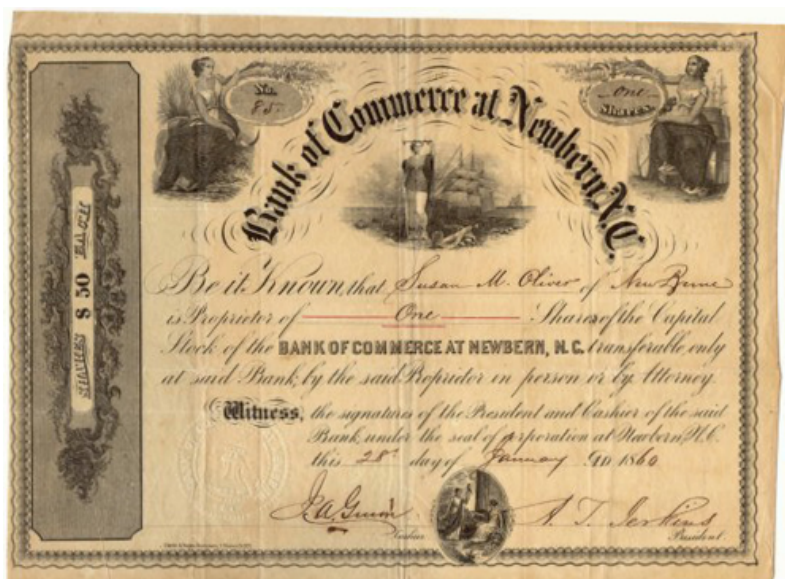 No.
85.
One
Shares.
Bank of Commerce at Newbern, N.C.
SHARES $ 50 EACH
Be it Known, that Susan M. Oliver of New Berne
is Proprietor of One Shares of the Capital
Stock of the BANK OF COMMERCE AT NEWBERN, N.C. transferable only
at said Bank, by the said Proprietor in person or by Attorney.
Witness, the signatures of the President and Cashier of the said
Bank, under the seal of corporation at Newbern, N.C.
this 28th day of January AD 1860
J. A. Guion
Cashier
A. T. Jerkins
President.